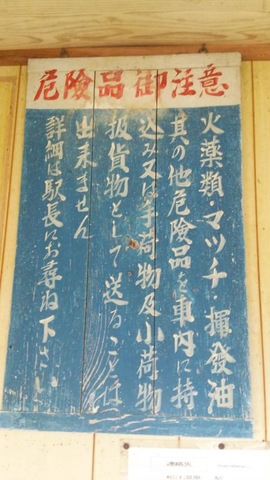 危險品御注意
火薬類・マッチ・揮發油
其の他危險品を車内に持
込み又は手荷物及小荷物
扱貨物として送ることは
出来ません
詳細は駅長にお尋ね下さい
連絡先